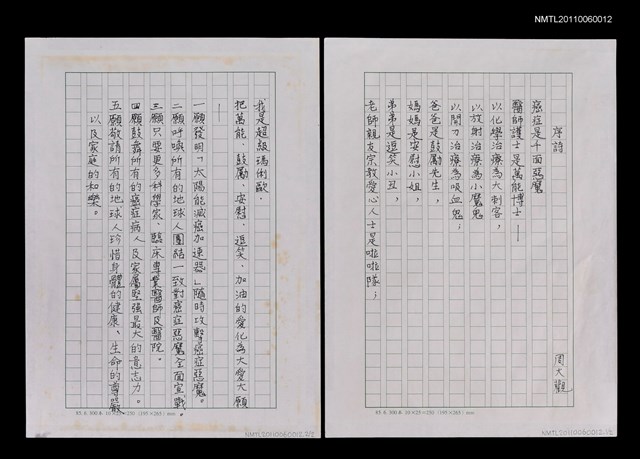 NMTL20110060012
序詩
周大觀
癌症是千面惡魔
醫師護士是萬能博士——
以化學治療為大刺客，
以放射治療為小魔鬼
以開刀治療為吸血鬼；
爸爸是鼓勵先生，
媽媽是安慰小姐，
弟弟是逗笑小丑，
老師親友宗教愛心人士是啦啦隊；
我是超級瑪俐歐，
把萬能、鼓勵、安慰、逗笑、加油的愛化為大愛大願
——
一願發明「太陽能滅癌加速器」隨時攻擊癌症惡魔。
二願呼喚所有的地球人團結一致對癌症惡魔全面宣戰。
三願只要更多科學家、臨床專業醫師及醫院。
四願鼓舞所有的癌症病人及家屬堅強最大的意志力。
五願敬請所有的地球人珍惜身體的健康、生命的尊嚴
以及家庭的和樂。
NMTL20110060012.2/2
NMTL20110060012.1/2